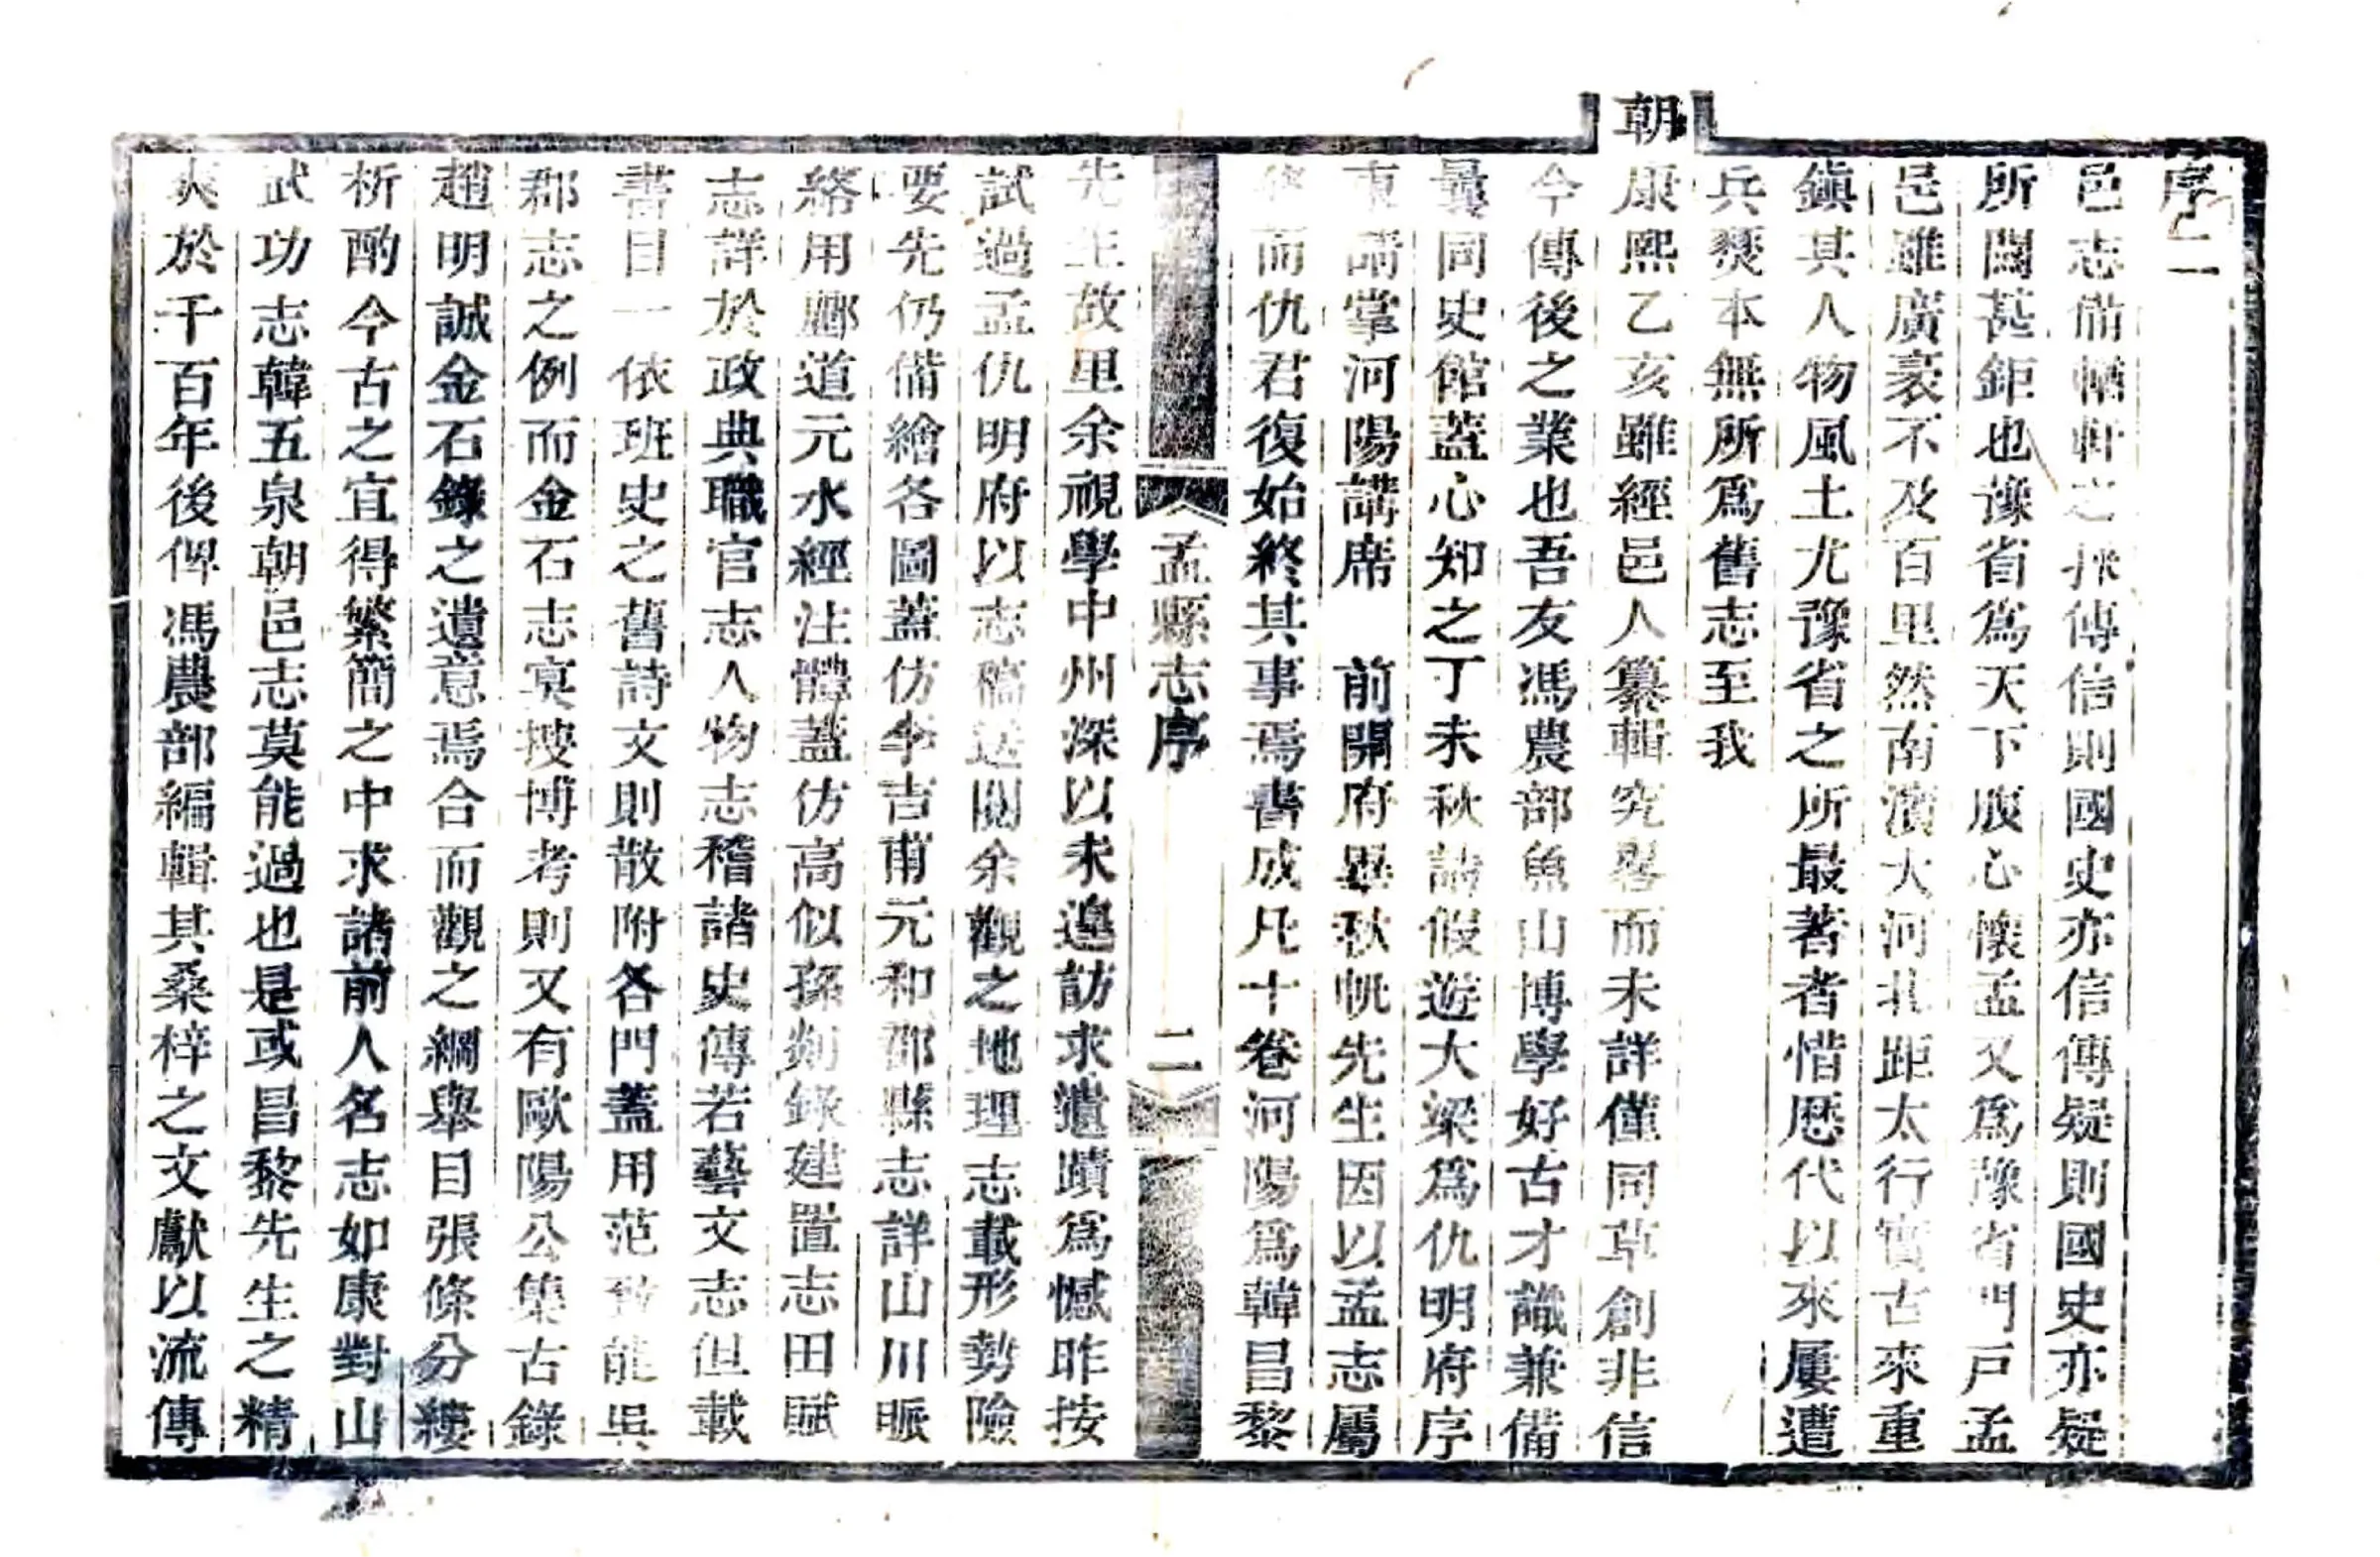 序二
邑志備輶軒之採傳信則國史亦信傳疑則國史亦疑
所關甚鉅也豫省爲天下腹心懷孟又爲豫省門戸孟
邑雖廣袤不及百里然南濱大河北距太行實古來重
鎮其人物風土尤豫省之所最著者惜歴代以來屢遭
兵燹本無所爲舊志至我
朝康熙乙亥雖經邑人纂輯究畧而未詳僅同草創非信
今傳後之業也吾友馮農部魚山博學好古才識兼備
曩同史館蓋心知之丁未秋請假遊大梁爲仇明府序
東請掌河陽講席 前開府畢秋帆先生因以孟志屬
而仇君復始終其事焉書成凡十卷河陽爲韓昌黎
孟縣志序
二
先生故里余視學中州深以未遑訪求遺蹟爲憾昨按
試過孟仇明府以志稿送閱余觀之地理志載形勢險
要先仍備繪各圖蓋仿李吉甫元和郡縣志詳山川脈
絡用酈道元水經注體蓋仿高似孫剡錄建置志田賦
志詳於政典職官志人物志稽諸史傳若藝文志但載
書目一依班史之舊詩文則散附各門蓋用范致能吳
郡志之例而金石志冥搜博考則又有歐陽公集古錄
趙明誠金石錄之遺意焉合而觀之綱舉目張條分縷
析酌今古之宜得繁簡之中求諸前人名志如康對山
武功志韓五泉朝邑志莫能過也是或昌黎先生之精
爽於千百年後俾馮農部編輯其桑梓之文獻以流傳